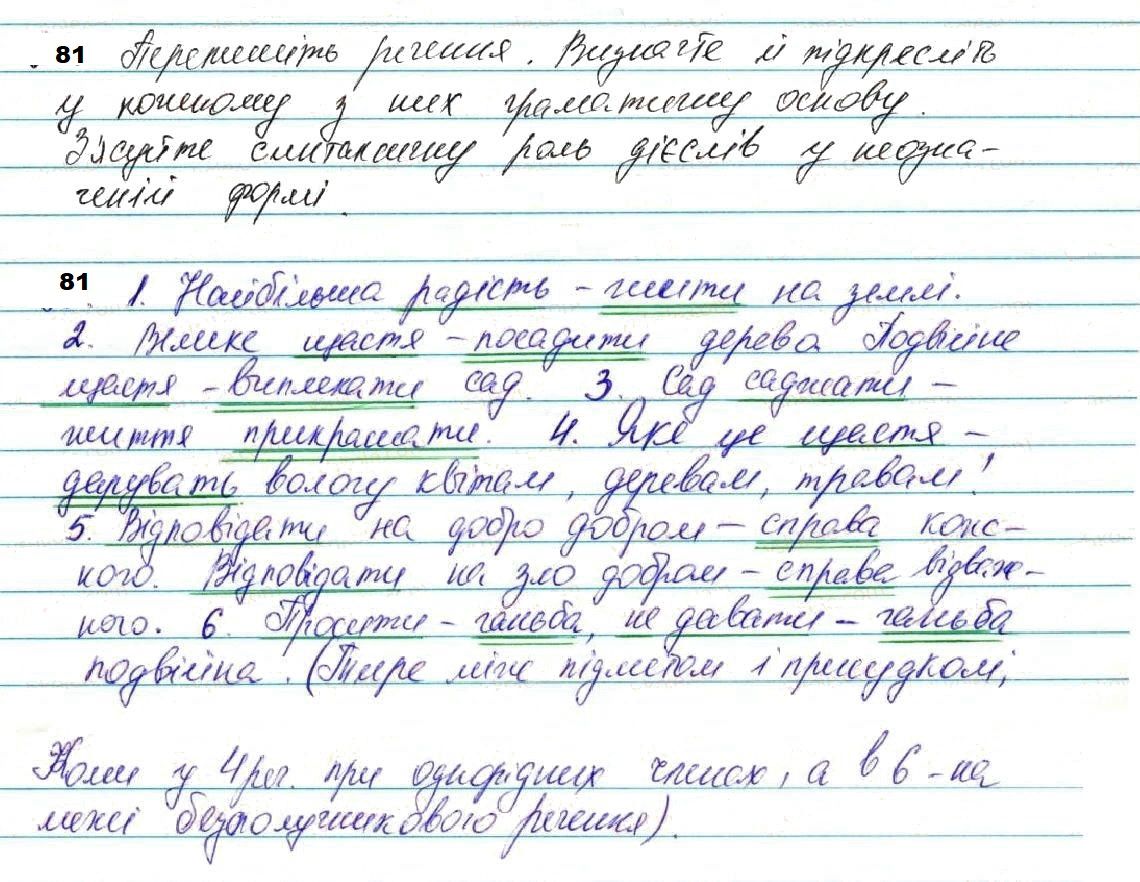 81 Перепишіть речення. Визначте й підкресліть
у кожному з них граматичну основу.
З'ясуйте синтаксичну роль дієслів у неозна-
ченій формі.
81 1. Найбільша радість – жити на землі.
2. Велике щастя – посадити дерево. Подвійне
щастя – виплекати сад. 3. Сад саджати –
життя прикрашати. 4. Яке це щастя –
дарувать вологу квітам, деревам, травам!
5. Відповідати на добро добром – справа кожс-
ного. Відповідати на зло добром – справа відваж-
ного. 6. Просити – ганьба, не давати – ганьба
подвійна. (Тире між підметом і присудком;
Коми у 4 реч. при однорідних членах, а в 6 – на
межі безсполучникового речення).